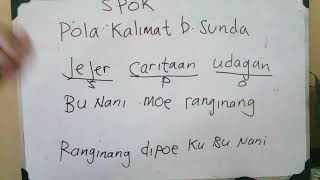 SPOK
Pola Kalimat b. Sunda
Jejer caritaan udagan
S P O
Bu Nani moe ranginang
Ranginang dipoe Ku Bu Nani